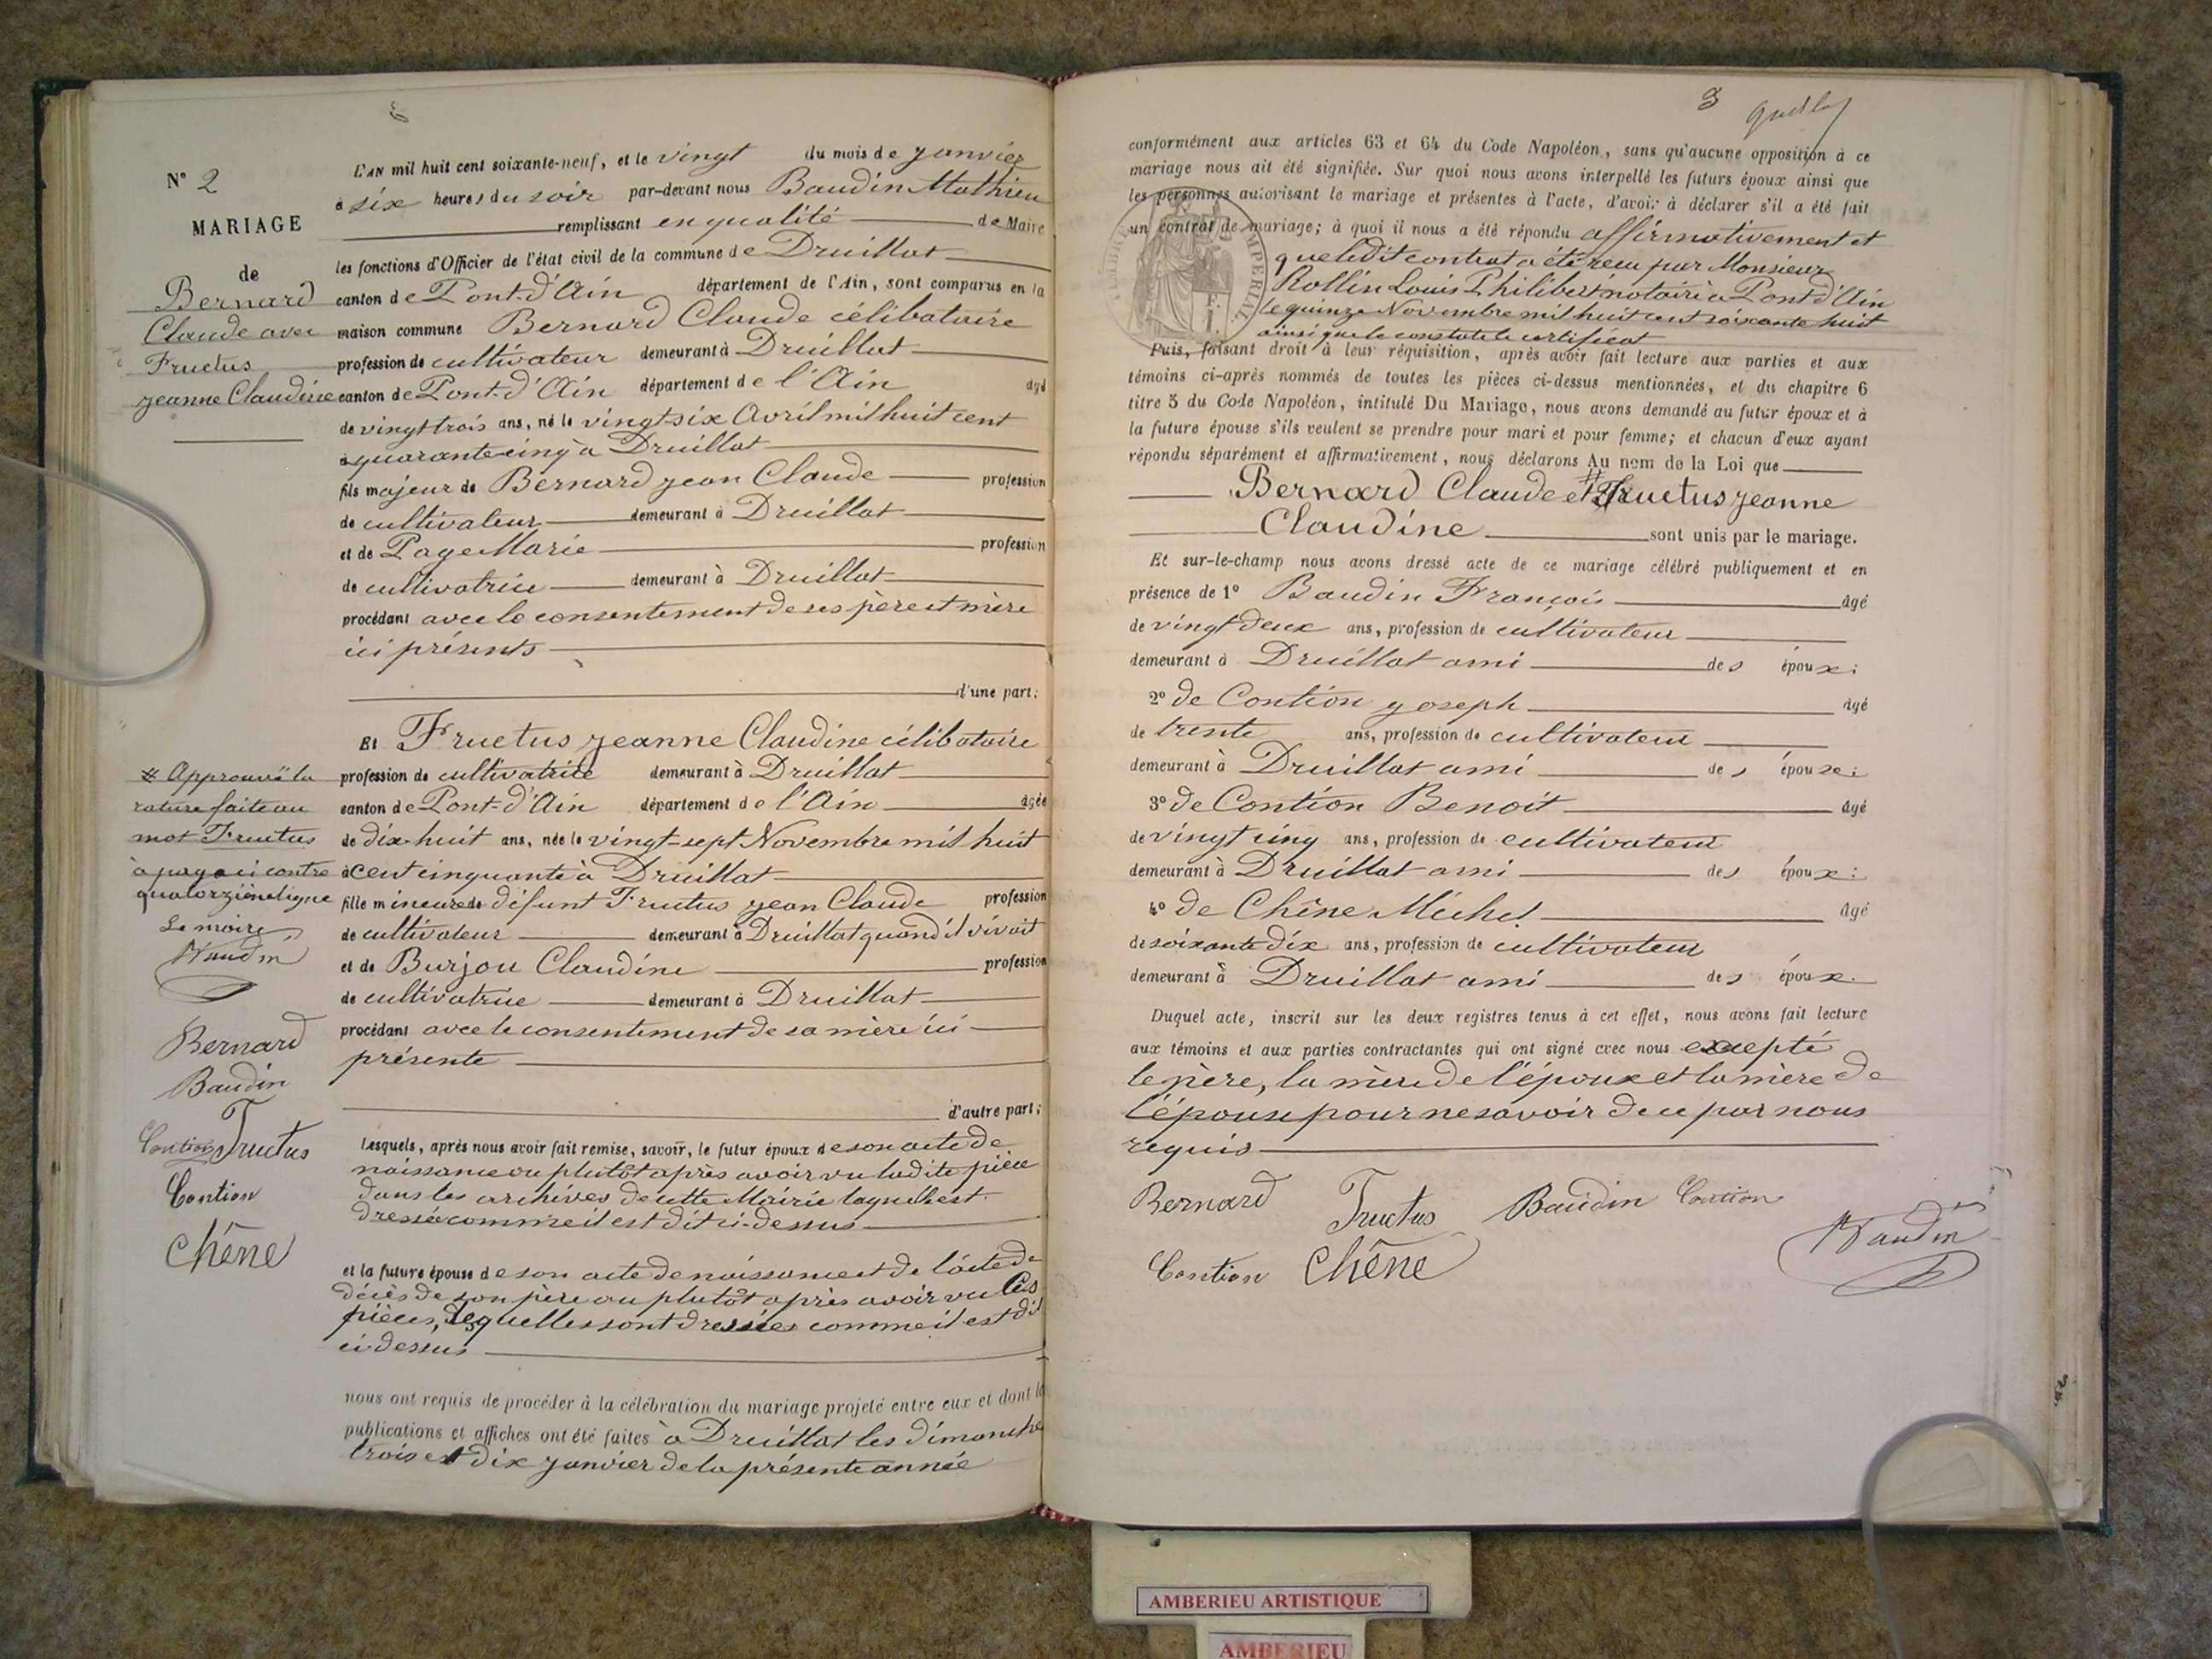 N° 2
MARIAGE
de
Bernard
Claude avec
Fructus
jeanne Claudine
L'AN mil huit cent soixante-neuf, et le vingt du mois de janvier
à six heures du soir par-devant nous Baudin Mathieu
remplissant en qualité de Maire
les fonctions d'Officier de l'état civil de la commune de Druillat
canton de Pont-d'Ain département de l'Ain, sont comparus en la
maison commune Bernard Claude célibataire
profession de cultivateur demeurant à Druillat
canton de Pont-d'Ain département de l'Ain âgé
de vingt trois ans, né le vingt-six Avril mil huit cent
quarante-cinq à Druillat
fils majeur de Bernard jean Claude profession
de cultivateur demeurant à Druillat
et de Page Marie profession
de cultivatrice demeurant à Druillat
procédant avec le consentement de ses père et mère
ici présents
d'une part;
Et Fructus jeanne Claudine célibataire
profession de cultivatrice demeurant à Druillat
canton de Pont-d'Ain département de l'Ain âgée
de dix-huit ans, née le vingt-sept Novembre mil huit
à cent cinquante à Druillat
fille mineure de défunt Fructus jean Claude profession
de cultivateur demeurant à Druillat quand il vivait
et de Burjou Claudine profession
de cultivatrice demeurant à Druillat
procédant avec le consentement de sa mère ici
présente
d'autre part;
Lesquels, après nous avoir fait remise, savoir, le futur époux de son acte de
naissance ou plutôt après avoir vu ladite pièce
dans les archives de cette Mairie laquelle est
dressée comme il est dit ci-dessus
et la future épouse de son acte de naissance et de l'acte de
décès de son père ou plutôt après avoir vu les
pièces, lesquelles sont dressées comme il est dit
ci-dessus
nous ont requis de procéder à la célébration du mariage projeté entre eux et dont les
publications et affiches ont été faites à Druillat les dimanche
trois et dix janvier de la présente année
# Approuvé la
rature faite au
mot Fructus
à page ci contre
quatorzième ligne
Le maire
Baudin
Bernard
Baudin
Contion Fructus
Contion
Chêne
3
conformément aux articles 63 et 64 du Code Napoléon, sans qu'aucune opposition à ce
mariage nous ait été signifiée. Sur quoi nous avons interpellé les futurs époux ainsi que
les personnes autorisant le mariage et présentes à l'acte, d'avoir à déclarer s'il a été fait
un contrat de mariage; à quoi il nous a été répondu affirmativement et
que ledit contrat a été reçu par Monsieur
Rollin Louis Philibert notaire à Pont d'Ain
le quinze Novembre mil huit cent soixante huit
ainsi que le constate le certificat
Puis, faisant droit à leur réquisition, après avoir fait lecture aux parties et aux
témoins ci-après nommés de toutes les pièces ci-dessus mentionnées, et du chapitre 6
titre 5 du Code Napoléon, intitulé Du Mariage, nous avons demandé au futur époux et à
la future épouse s'ils veulent se prendre pour mari et pour femme; et chacun d'eux ayant
répondu séparément et affirmativement, nous déclarons Au nom de la Loi que
Bernard Claude et # Fructus jeanne
Claudine sont unis par le mariage.
Et sur-le-champ nous avons dressé acte de ce mariage célébré publiquement et en
présence de 1° Baudin François âgé
de vingt deux ans, profession de cultivateur
demeurant à Druillat ami des époux;
2° de Contion joseph âgé
de trente ans, profession de cultivateur
demeurant à Druillat ami des époux;
3° de Contion Benoit âgé
de vingt cinq ans, profession de cultivateur
demeurant à Druillat ami des époux;
4° de Chêne Michel âgé
de soixante dix ans, profession de cultivateur
demeurant à Druillat ami des époux.
Duquel acte, inscrit sur les deux registres tenus à cet effet, nous avons fait lecture
aux témoins et aux parties contractantes qui ont signé avec nous excepté
le père, la mère de l'époux et la mère de
l'épouse pour ne savoir de ce par nous
requis
Bernard Fructus Baudin Contion
Contion Chêne Baudin
AMBERIEU ARTISTIQUE
AMBERIEU